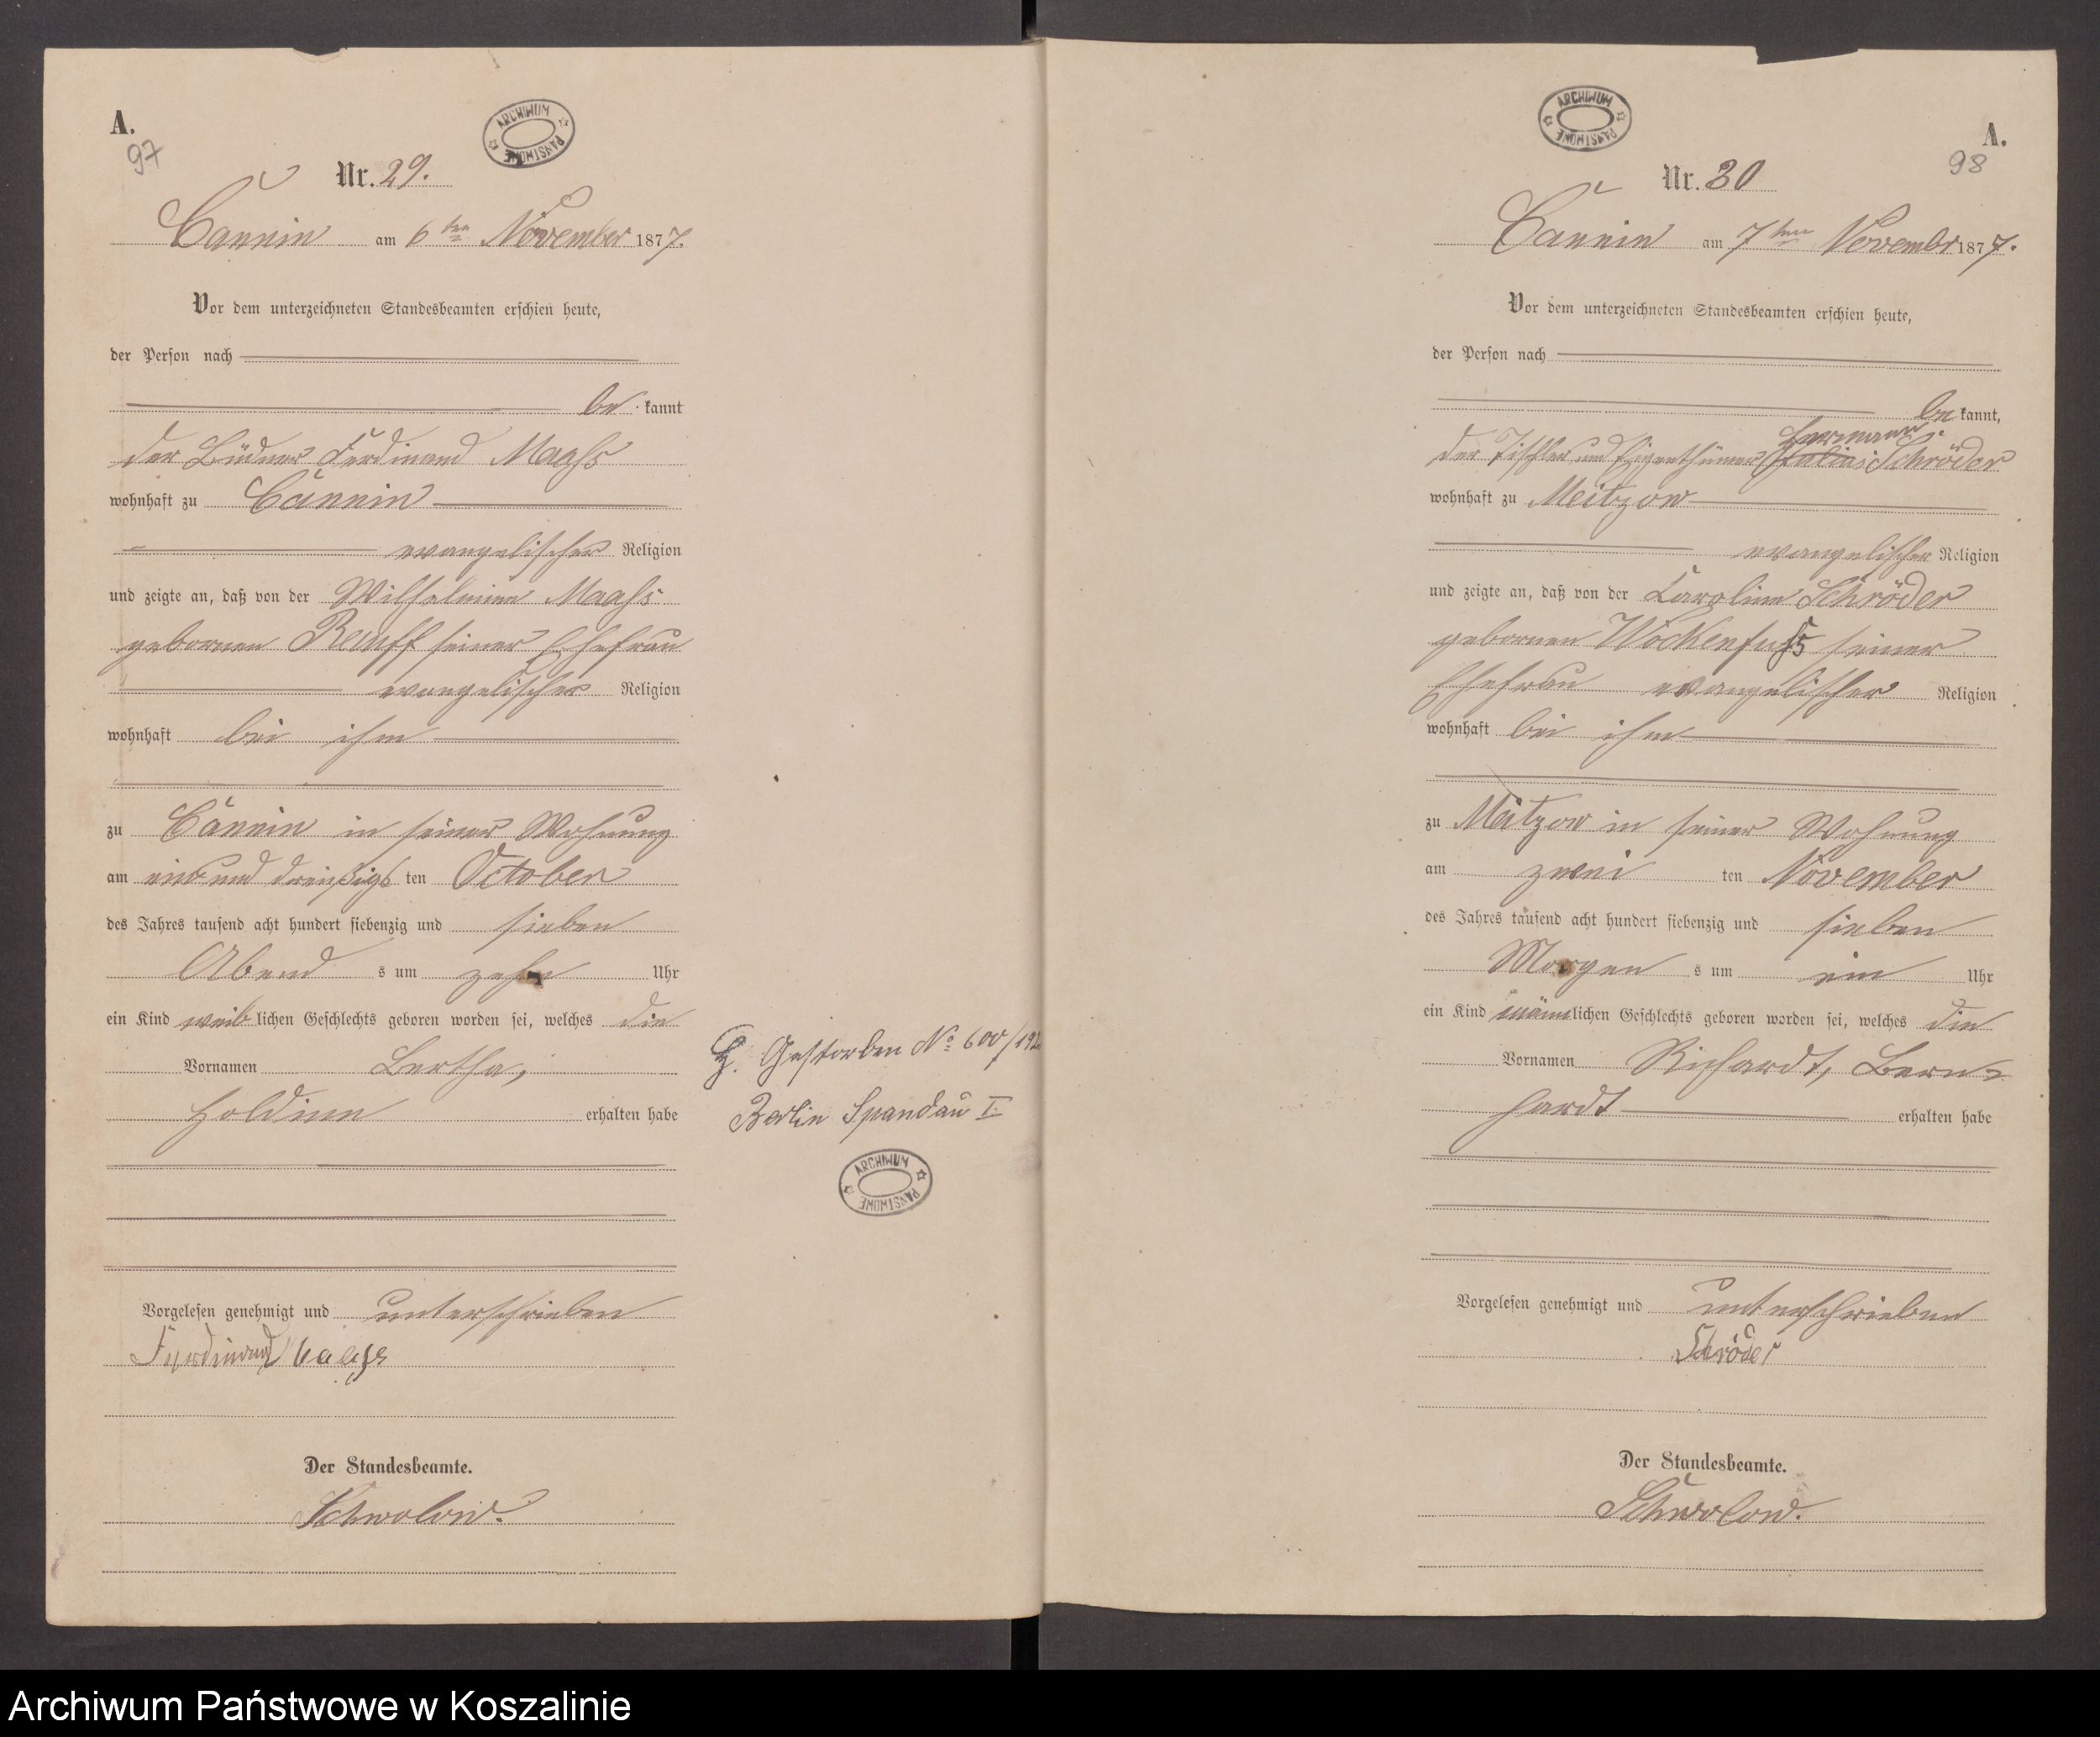 A.
97
ARCHIWUM PAŃSTWOWE
Nr. 29.
Cannin am 6ten November 1877.
Vor dem unterzeichneten Standesbeamten erschien heute,
der Person nach
be kannt
der Büdner Ferdinand Maaß
wohnhaft zu Cannin
evangelischer Religion
und zeigte an, daß von der Wilhelmine Maaß
gebornen seiner Ehefrau
evangelischer Religion
wohnhaft bei ihm
zu Cannin in seiner Wohnung
am ein und dreißigs ten October
des Jahres tausend acht hundert siebenzig und sieben
Abend s um zehn Uhr
ein Kind weib lichen Geschlechts geboren worden sei, welches die
Vornamen Bertha,
Holdine erhalten habe
Vorgelesen genehmigt und unterschrieben
Ferdinand
Der Standesbeamte.
Schwolow.
Gestorben No 600/19
Berlin Spandau I.
ARCHIWUM PAŃSTWOWE
ARCHIWUM PAŃSTWOWE
A.
98
Nr. 30
Cannin am 7ten November 1877.
Vor dem unterzeichneten Standesbeamten erschien heute,
der Person nach
be kannt,
Hermann
der Tischler und Eigenthümer Schröder
wohnhaft zu Meitzow
evangelischer Religion
und zeigte an, daß von der Caroline Schröder
gebornen Wockenfuß seiner
Ehefrau evangelischer Religion
wohnhaft bei ihm
zu Meitzow in seiner Wohnung
am zwei ten November
des Jahres tausend acht hundert siebenzig und sieben
Morgen s um ein Uhr
ein Kind männ lichen Geschlechts geboren worden sei, welches die
Vornamen Richardt, Bern-
hardt erhalten habe
Vorgelesen genehmigt und unterschrieben
Schröder
Der Standesbeamte.
Schwolow.
Archiwum Państwowe w Koszalinie